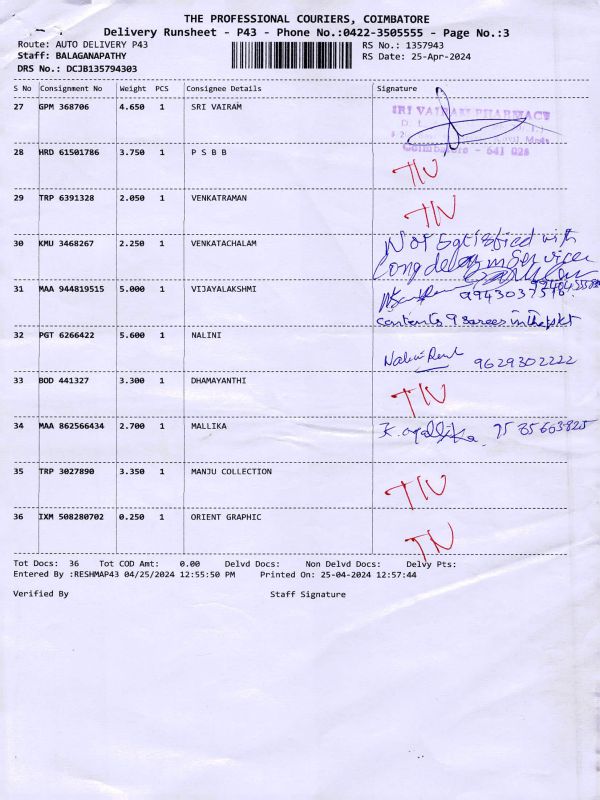 THE PROFESSIONAL COURIERS, COIMBATORE
Delivery Runsheet - P43 - Phone No.:0422-3505555 - Page No.:3
Route: AUTO DELIVERY P43 RS No.: 1357943
Staff: BALAGANAPATHY RS Date: 25-Apr-2024
DRS No.: DCJB135794303
S No Consignment No Weight PCS Consignee Details Signature
27 GPM 368706 4.650 1 SRI VAIRAM
SRI VAIRAM PHARMACY
Coimbatore - 641 028
28 HRD 61501786 3.750 1 P S B B
TN
29 TRP 6391328 2.050 1 VENKATRAMAN
TN
30 KMU 3468267 2.250 1 VENKATACHALAM Not Satisfied with
Long delay in Service
31 MAA 944819515 5.000 1 VIJAYALAKSHMI
contents 9 sarees in the pkt
32 PGT 6266422 5.600 1 NALINI
9629302222
33 BOD 441327 3.300 1 DHAMAYANTHI
TN
34 MAA 862566434 2.700 1 MALLIKA K. Mallika
35 TRP 3027890 3.350 1 MANJU COLLECTION
TN
36 IXM 508280702 0.250 1 ORIENT GRAPHIC
TN
Tot Docs: 36 Tot COD Amt: 0.00 Delvd Docs: Non Delvd Docs: Delvy Pts:
Entered By :RESHMAP43 04/25/2024 12:55:50 PM Printed On: 25-04-2024 12:57:44
Verified By Staff Signature